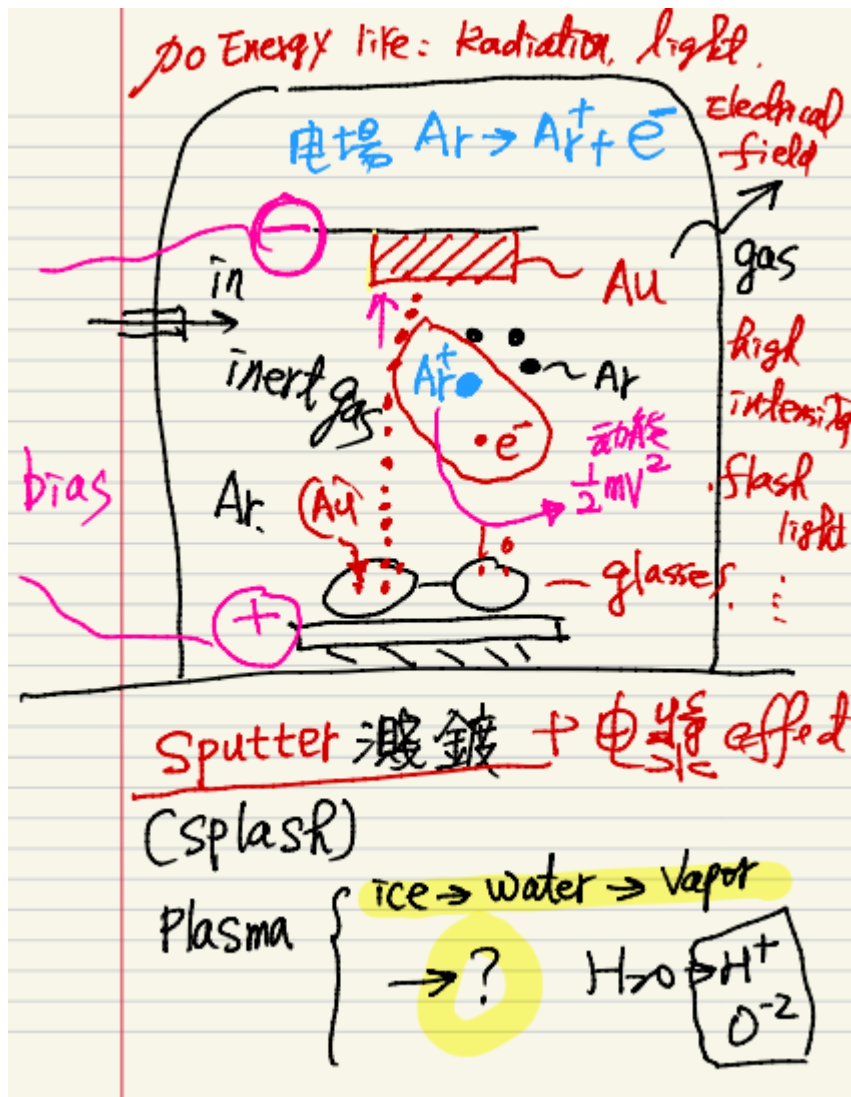 Do Energy like: Radiation, light.
Electrical
field
电場 Ar → Ar⁺ + e⁻
−
in
Au
gas
inert gas
Ar⁺
Ar
high
intensity
e⁻
动能
½mv²
flash
light
bias
Ar.
Au
glasses
+
Sputter 濺鍍 + 电漿 effect
(splash)
Plasma
ice → water → Vapor
→ ?
H₂O → H⁺
O⁻²